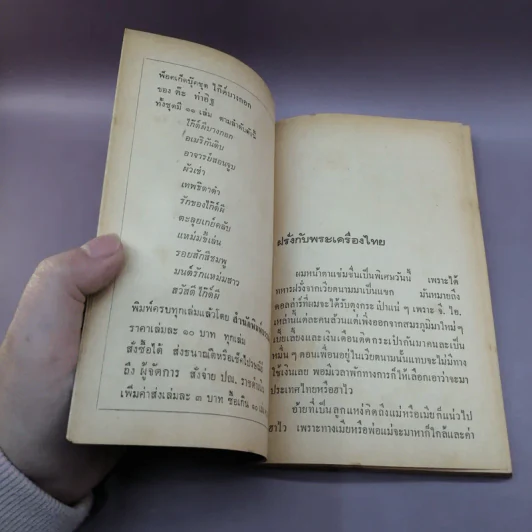 พ็อคเก็ตบุ๊คชุด ไก๊ด์บางกอก
ของ ต๊ะ ท่าอิฐ
ทั้งชุดมี ๑๑ เล่ม ตามลำดับดังนี้
ไก๊ด์ผีบางกอก
อเมริกันดิบ
อาจารย์สอนจูบ
ผัวเช่า
เทพธิดาดำ
รักของไก๊ด์ผี
ตะลุยเกย์คลับ
แหม่มขี้เล่น
รอยสักสีชมพู
มนต์รักแหม่มสาว
สวัสดีไก๊ด์ผี
พิมพ์ครบทุกเล่มแล้วโดย สำนักพิมพ์
ราคาเล่มละ ๑๐ บาท ทุกเล่ม
สั่งซื้อได้ ส่งธนาณัติหรือเช็คไปรษณีย์
ถึง ผู้จัดการ สั่งจ่าย ปณ. ราชดำเนิน
เพิ่มค่าส่งเล่มละ ๓ บาท ซื้อเกิน ๑๐ เล่ม
ฝรั่งกับพระเครื่องไทย
ผมหน้าตาแช่มชื่นเป็นพิเศษวันนี้ เพราะได้
ทหารฝรั่งจากเวียดนามมาเป็นแขก มันหมายถึง
ดอลล่าร์ที่ผมจะได้รับตุงกระเป๋าแน่ ๆ เพราะ จี. ไอ.
เหล่านี้แต่ละคนล้วนแต่เพิ่งออกจากสมรภูมิมาใหม่ๆ
เบี้ยเลี้ยงและเงินเดือนติดกระเป๋ากันมาคนละเป็น
หมื่นๆ ตอนเพื่อนอยู่ในเวียดนามนั้นแทบจะไม่มีทาง
ใช้เงินเลย พอมีเวลาพักทางการก็ให้เลือกเอาว่าจะมา
ประเทศไทยหรือฮาไว
อ้ายที่เป็นลูกแหง่ติดถึงแม่หรือเมียก็แน่วไป
ฮาไว เพราะทางเมียหรือพ่อแม่จะมาหาก็ใกล้และค่า